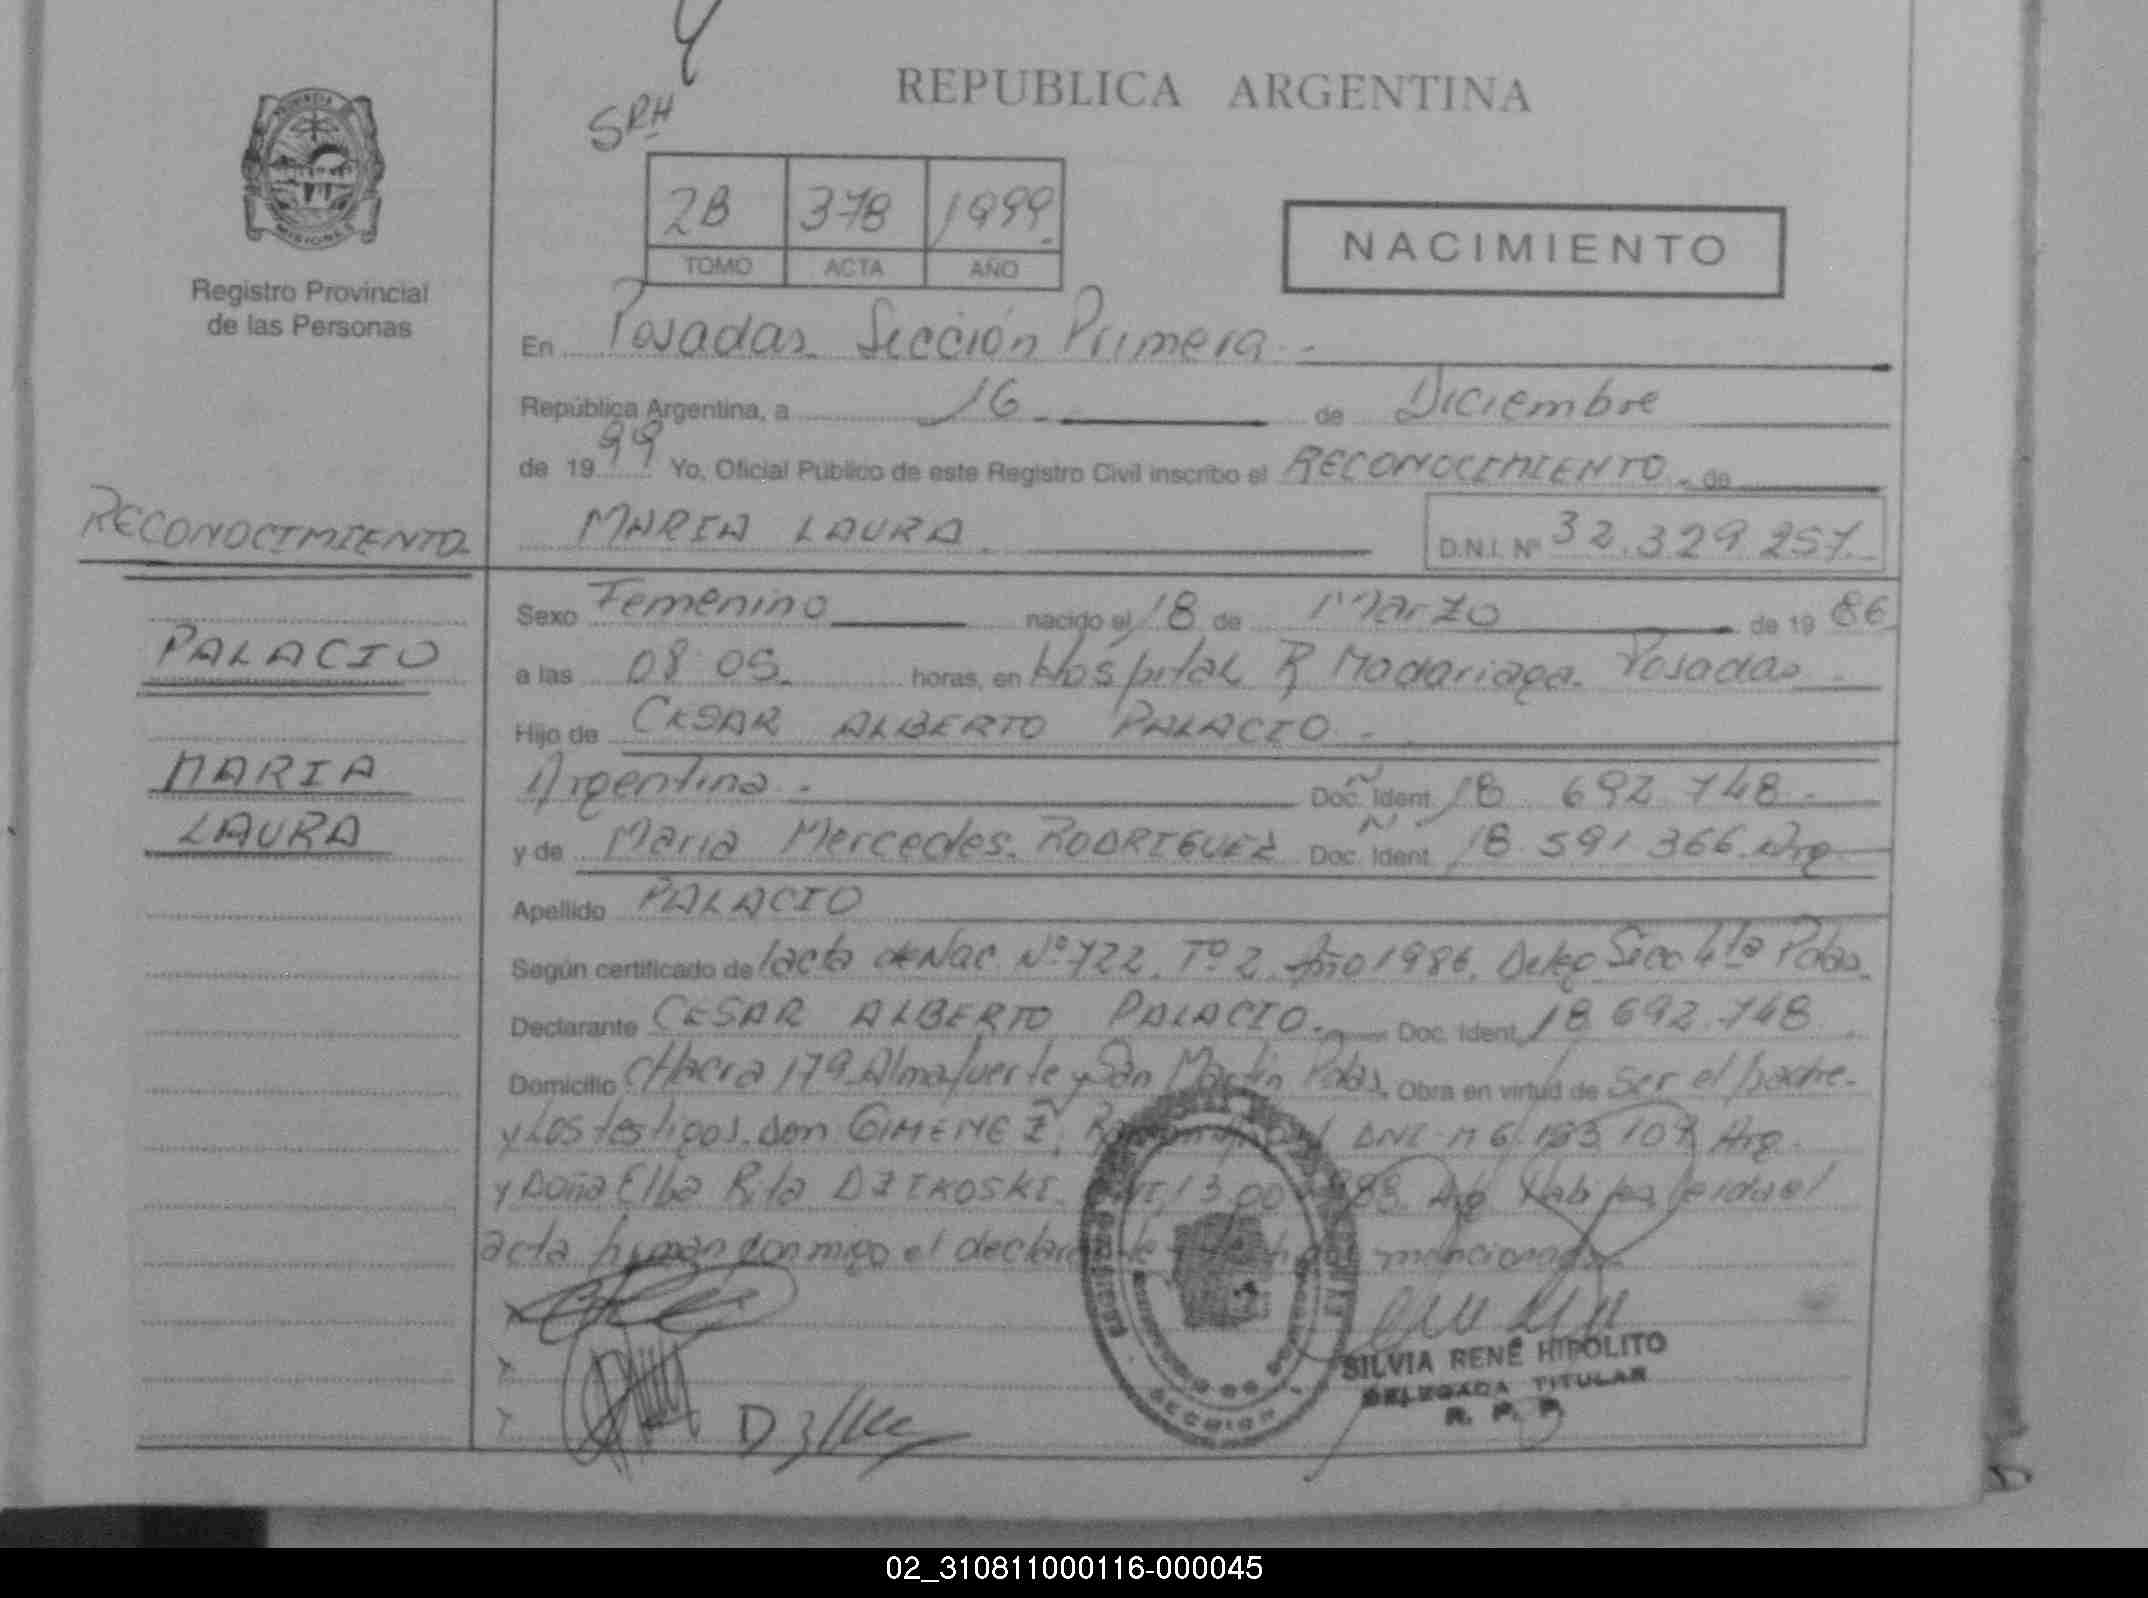 REPUBLICA ARGENTINA
SRH
2B 378 1999.
TOMO ACTA AÑO
NACIMIENTO
PROVINCIA
MISIONES
Registro Provincial
de las Personas
En Posadas Sección Primera.-
República Argentina, a 16 de Diciembre
de 1999 Yo, Oficial Público de este Registro Civil inscribo el RECONOCIMIENTO de
RECONOCIMIENTO
MARIA LAURA D.N.I. Nº 32.329.257.
Sexo Femenino nacido el 18 de Marzo de 1986
PALACIO
a las 08 05. horas, en Hospital R Madariaga. Posadas
Hijo de CESAR ALBERTO PALACIO.-
MARIA
Argentina.- Doc. Ident. 18 692 748.-
LAURA
y de Maria Mercedes. RODRIGUEZ Doc. Ident. 18 591 366. Arg
Apellido PALACIO
Según certificado de 1 acta de Nac. Nº 722. Tº 2 Año 1986. Deleg Secc 4ta Pdas.
Declarante CESAR ALBERTO PALACIO. Doc. Ident. 18 692.748
Domicilio Chacra 179 Almafuerte y San Martin Pdas. Obra en virtud de Ser el padre.
y Los testigos. don GIMENEZ, DNI Arg.
y Doña Elba Rita DZIKOSKI. 13 Arg
acta firman conmigo el
SECCION
SILVIA RENÉ HIPOLITO
DELEGADA TITULAR
R. P. P.
02_310811000116-000045